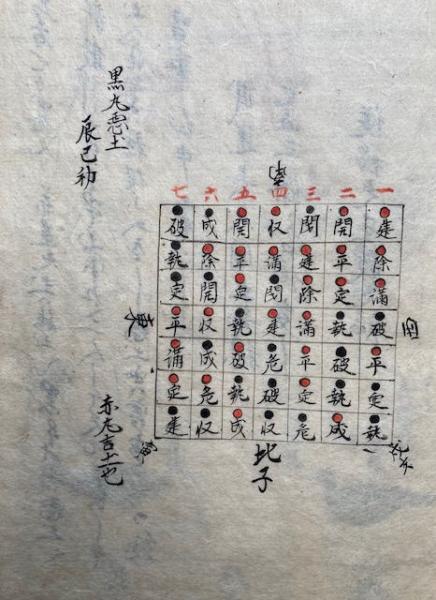 黒丸悪土
辰巳
七 六 五 四 三 二 一
破 成 開 収 閉 開 建
執 除 平 満 建 平 除
定 開 定 閉 除 定 満
平 収 執 建 満 執 破
満 成 破 危 平 破 平
定 危 執 破 定 執 定
建 収 成 収 危 成 執
東
西
北
子
寅
赤丸吉土也